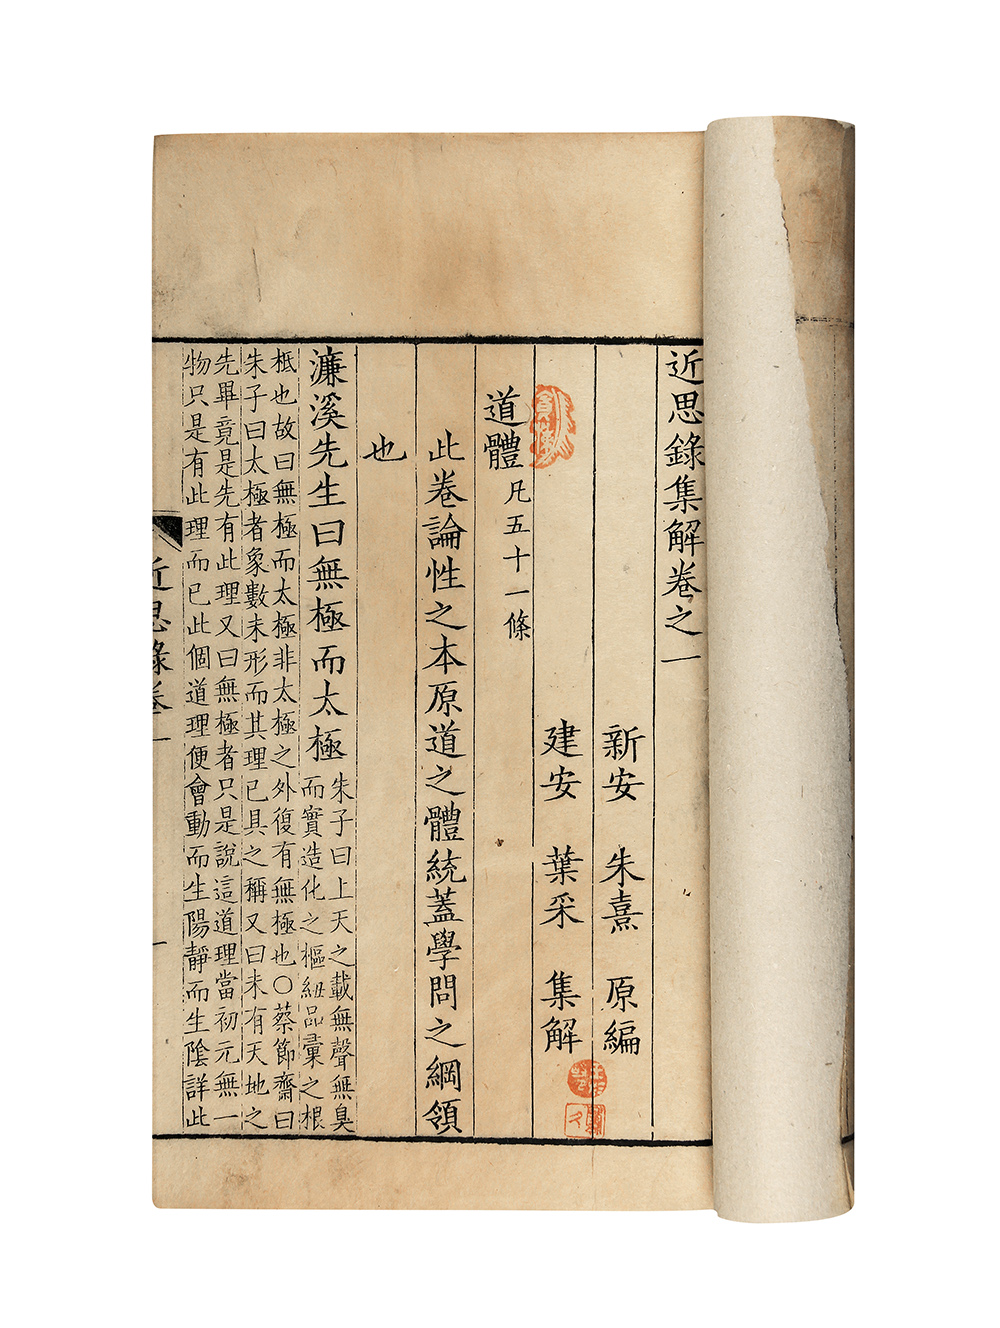 近思錄集解卷之一
新安　朱熹　原編
建安　葉采　集解
道體凡五十一條
此卷論性之本原道之體統蓋學問之綱領
也
濂溪先生曰無極而太極
朱子曰上天之載無聲無臭
而實造化之樞紐品彙之根
柢也故曰無極而太極非太極之外復有無極也○蔡節齋曰
朱子曰太極者象數未形而其理已具之稱又曰未有天地之
先畢竟是先有此理又曰無極者只是說這道理當初元無一
物只是有此理而已此個道理便會動而生陽靜而生陰詳此
近思錄卷一
一